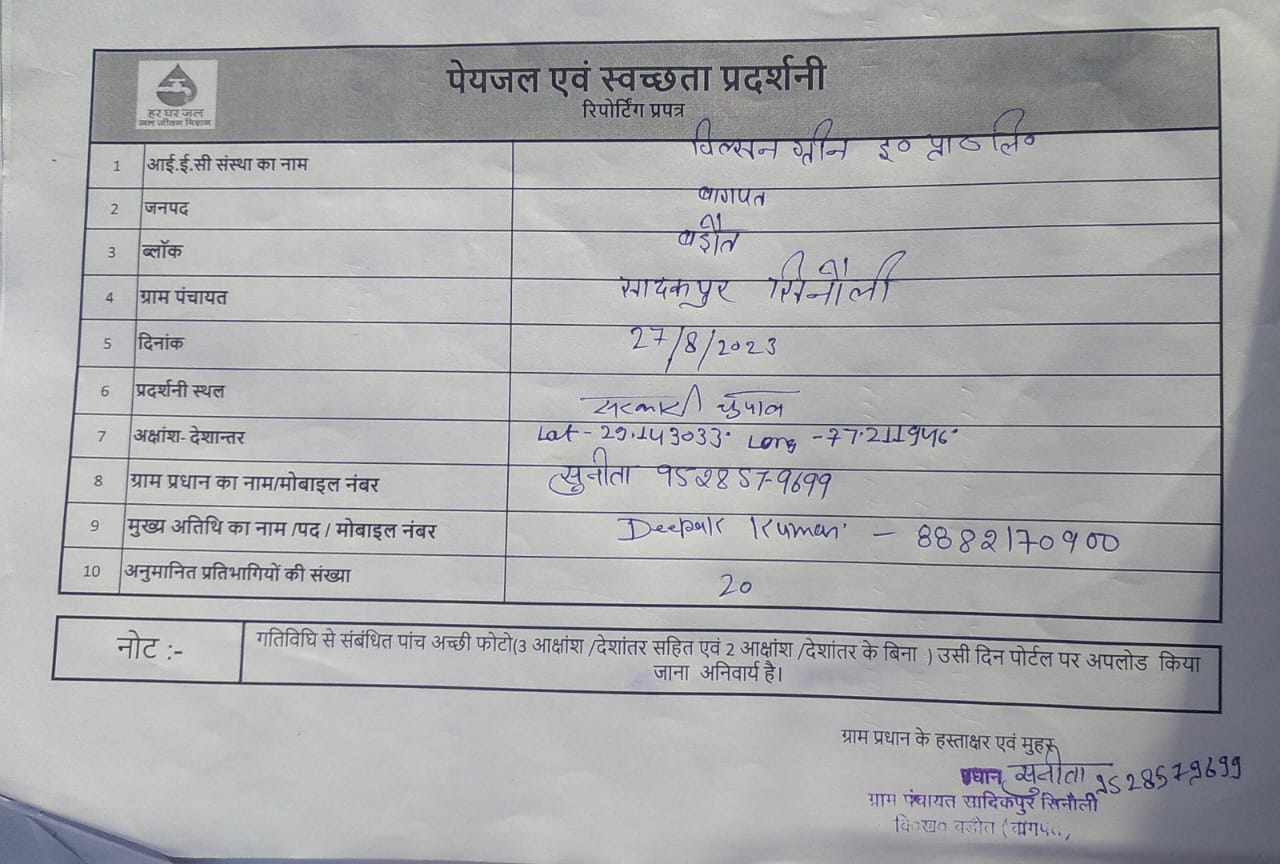 हर घर जल
जल जीवन मिशन
पेयजल एवं स्वच्छता प्रदर्शनी
रिपोर्टिंग प्रपत्र
1 आई.ई.सी संस्था का नाम विल्सन ग्रीन इ० प्रा० लि०
2 जनपद बागपत
3 ब्लॉक बड़ौत
4 ग्राम पंचायत सादकपुर सिनौली
5 दिनांक 27/8/2023
6 प्रदर्शनी स्थल सरकारी चौपाल
7 अक्षांश- देशान्तर Lat - 29.143033° Long - 77.211946°
8 ग्राम प्रधान का नाम/मोबाइल नंबर सुनीता 9528579699
9 मुख्य अतिथि का नाम /पद / मोबाइल नंबर Deepak Kumar - 8882170900
10 अनुमानित प्रतिभागियों की संख्या 20
नोट :- गतिविधि से संबंधित पांच अच्छी फोटो(3 आक्षांश /देशांतर सहित एवं 2 आक्षांश /देशांतर के बिना ) उसी दिन पोर्टल पर अपलोड किया
जाना अनिवार्य है।
ग्राम प्रधान के हस्ताक्षर एवं मुहर
प्रधान सुनीता 9528579699
ग्राम पंचायत सादिकपुर सिनौली
वि०ख० बड़ौत (बागपत)